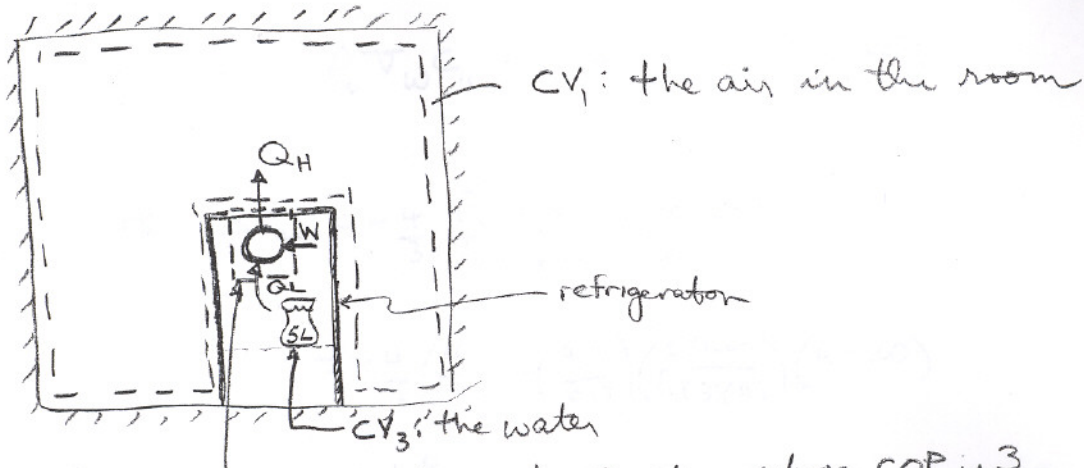 CV₁: the air in the room
Q_H
W
Q_L
refrigerator
5L
CV₃: the water
COP is 3